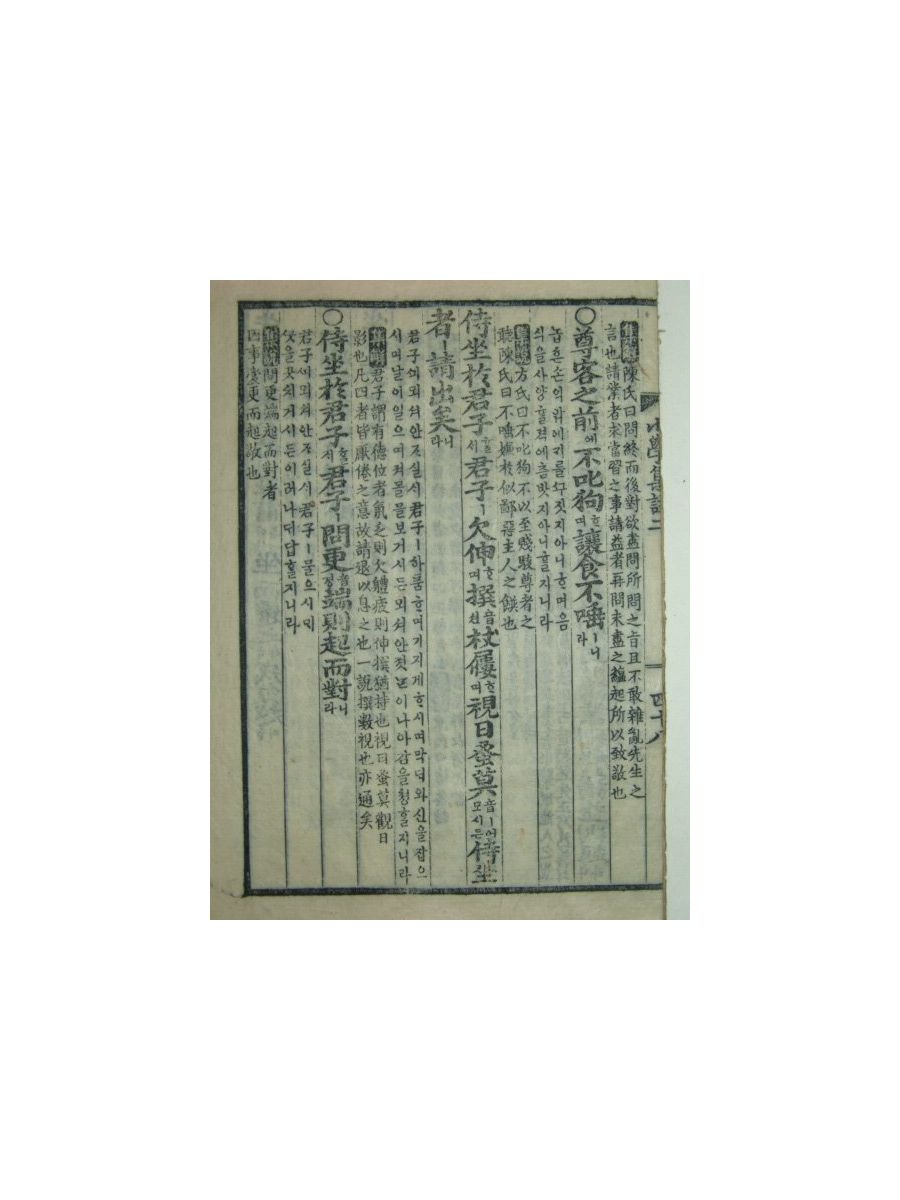 小學集註二
四十八
集解陳氏曰問終而後對欲盡問所問之旨且不敢雜亂先生之
言也請業者求當習之事請益者再問未盡之蘊起所以致敬也
○尊客之前에不叱狗ᄒᆞ며讓食不唾ㅣ니라
놉흔손의앏ᄒᆡ개를ᄭᅮ짓지아니ᄒᆞ며음
식을사양ᄒᆞᆯ젹에춤밧지아니ᄒᆞᆯ지니라
集說方氏曰不叱狗不以至賤駭尊者之
聽陳氏曰不唾嫌於似鄙惡主人之饌也
侍坐於君子ᄒᆞᆯᄉᆡ君子ㅣ欠伸ᄒᆞ며撰音선杖屨ᄒᆞ며視日蚤莫音모ㅣ어시든侍坐
者ㅣ請出矣니라
君子ᄭᅴ뫼셔안조실ᄉᆡ君子ㅣ하품ᄒᆞ며기지게ᄒᆞ시며막ᄃᆡ와신을잡으
시며날이일으며져믈믈보거시든뫼셔안젓ᄂᆞᆫ이나아감을쳥ᄒᆞᆯ지니라
集解君子謂有德位者氣乏則欠體疲則伸撰猶持也視日蚤莫觀日
影也凡四者皆厭倦之意故請退以息之也一說撰數視也亦通矣
○侍坐於君子ᄒᆞᆯᄉᆡ君子ㅣ問更音경端則起而對니라
君子ᄭᅴ뫼셔안조실ᄉᆡ君子ㅣ물으시ᄃᆡ
ᄭᅳᆺ을곳치거시든이러나ᄃᆡ답ᄒᆞᆯ지니라
集說問更端起而對者
因事變更而起敬也